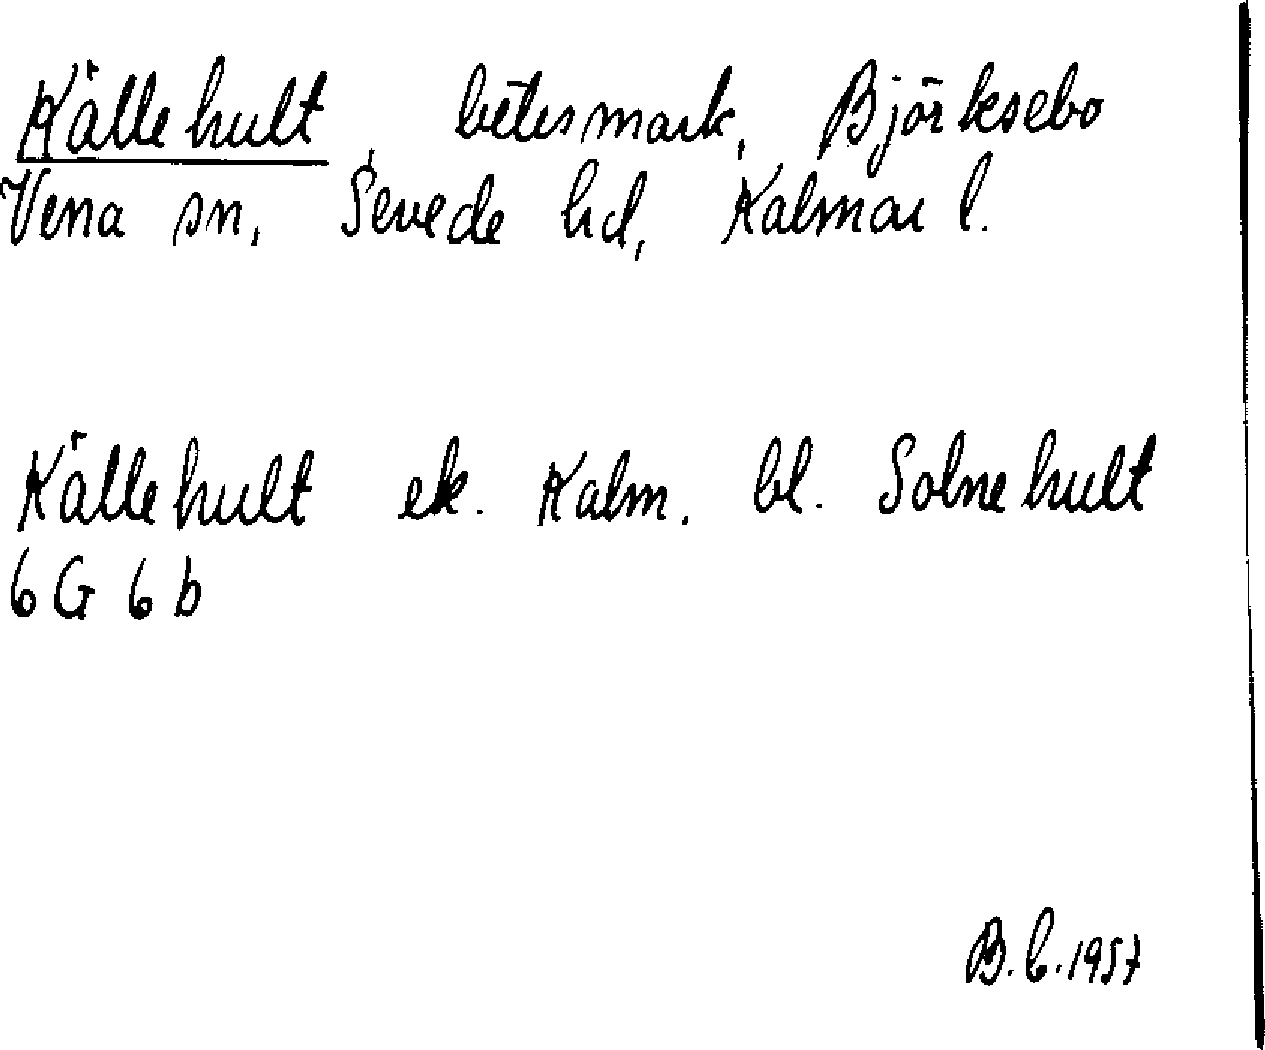 Källehult, betesmark, Björksebo
Vena sn, Sevede hd, Kalmar l.
Källehult ek. Kalm. bl. Solnehult
6G 6b
B.C. 1957